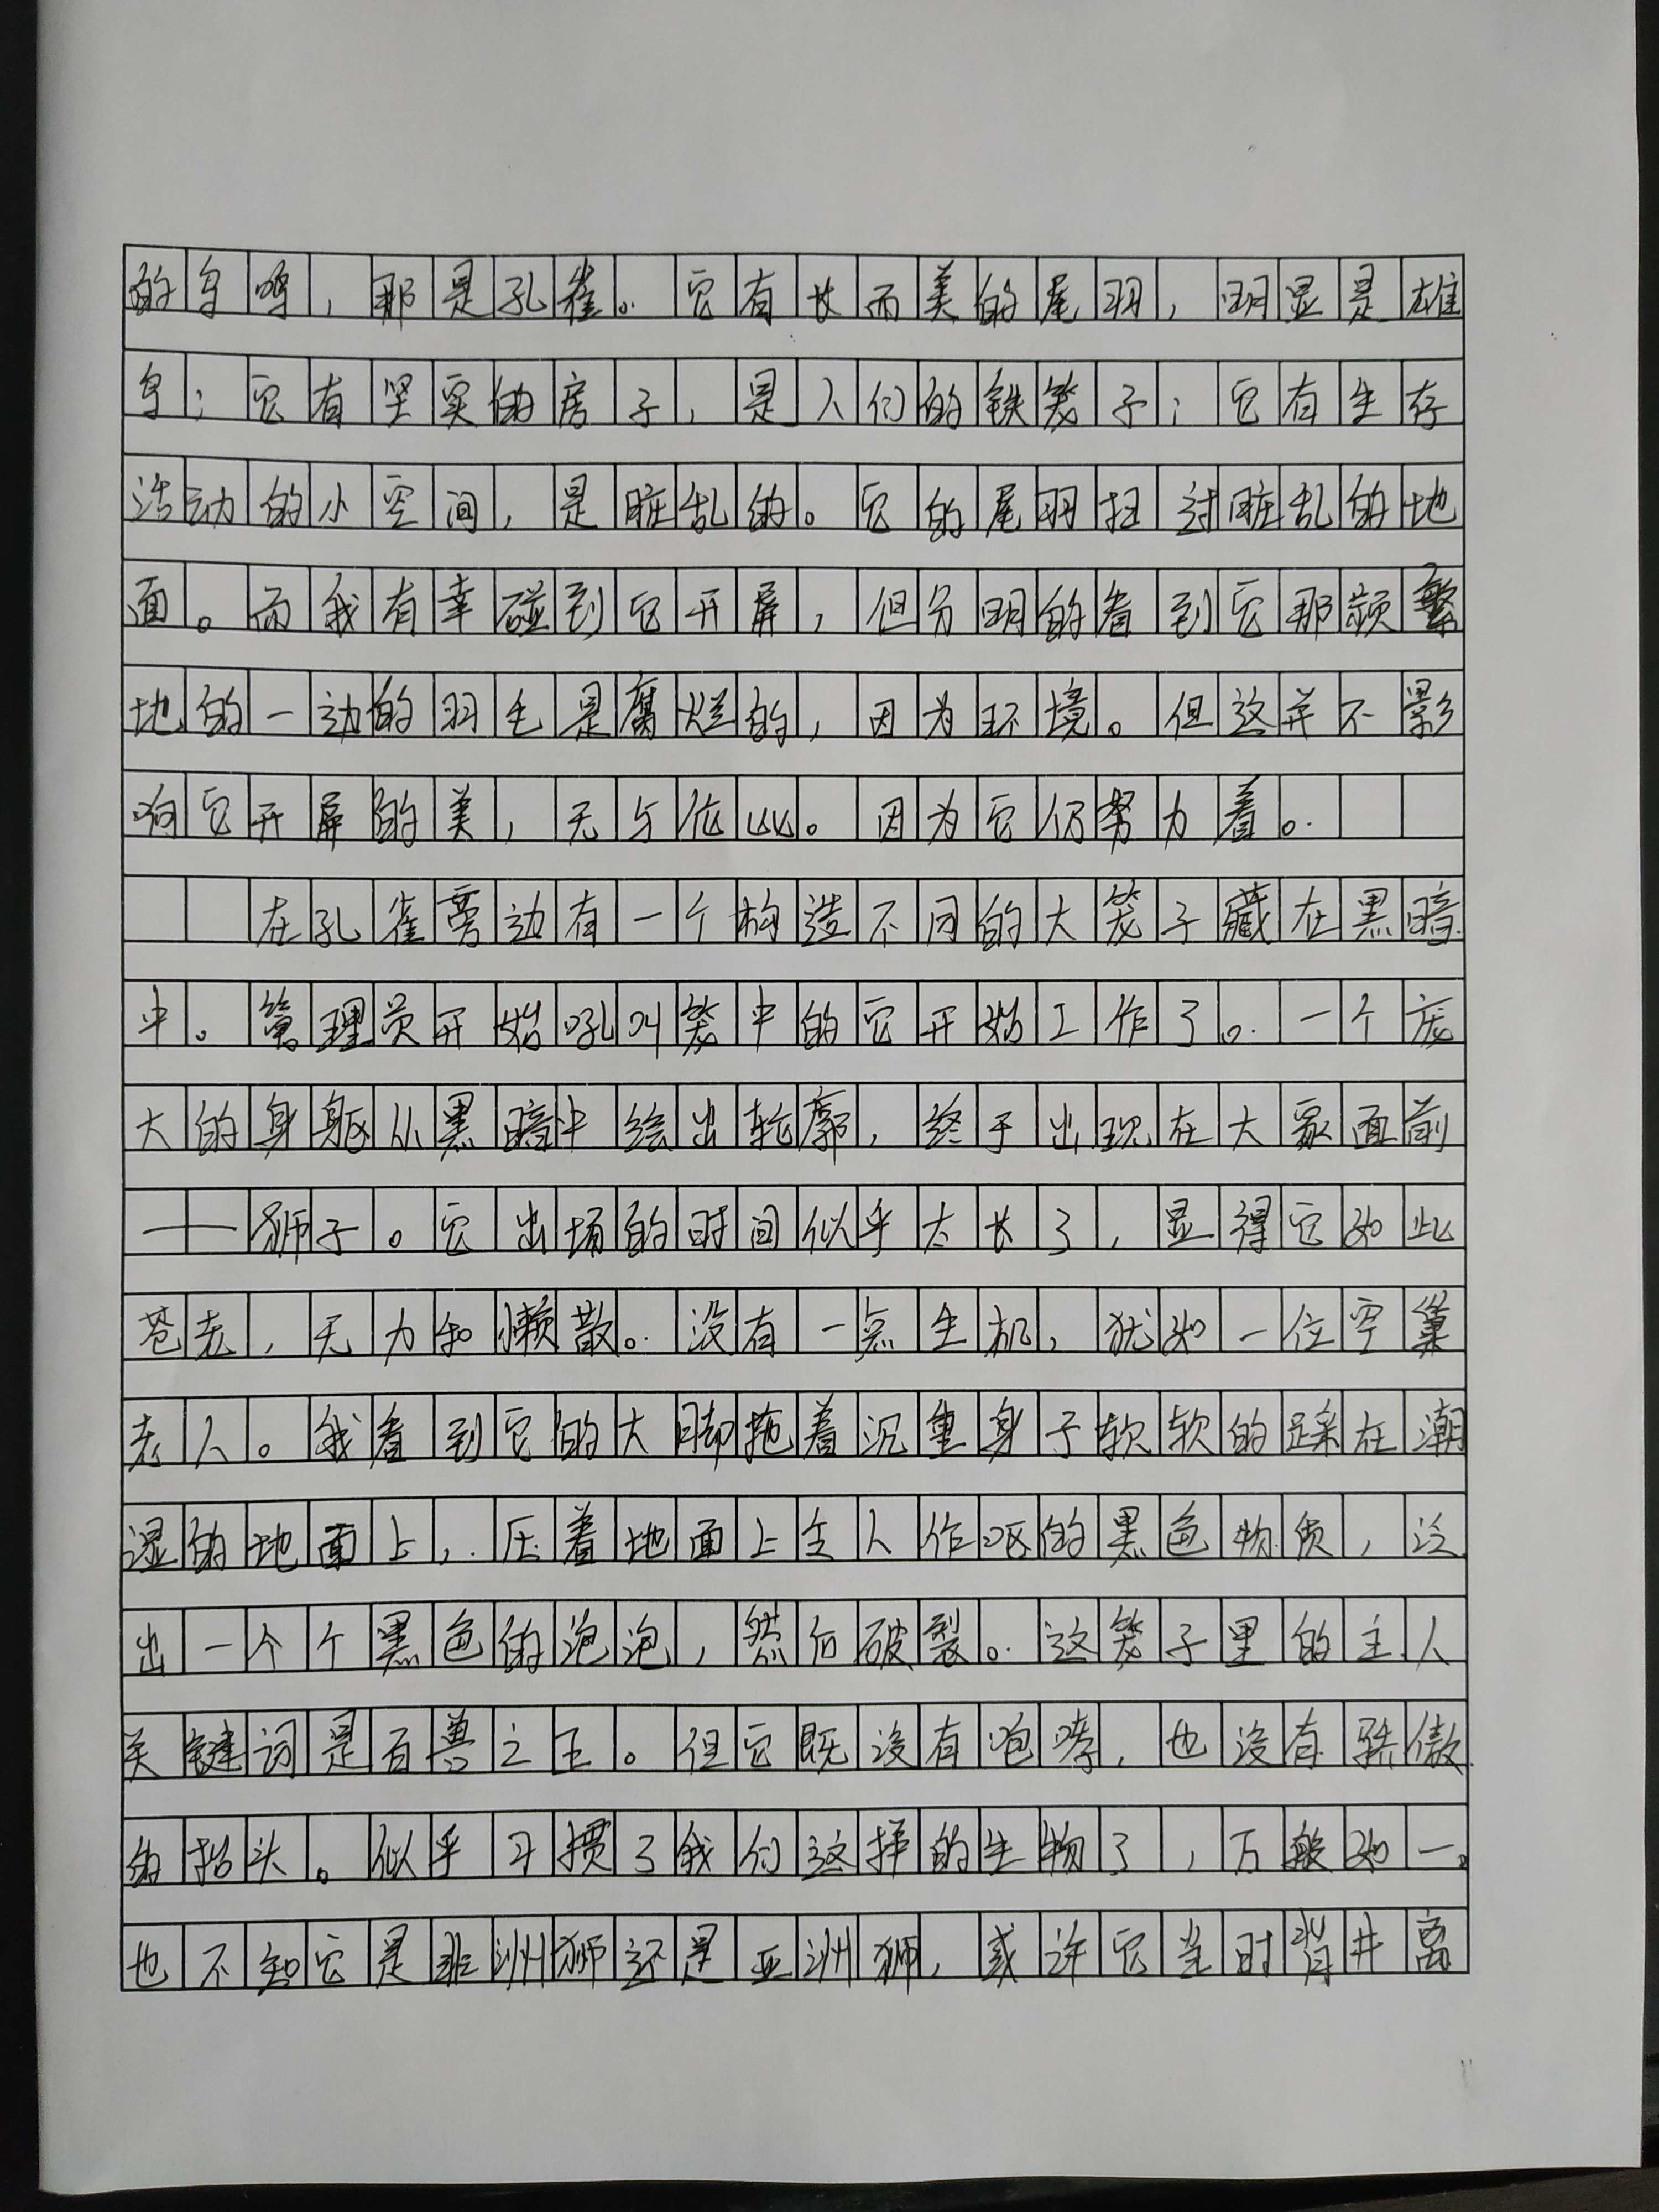 的鸟鸣，那是孔雀。它有长而美的尾羽，明显是雄
鸟；它有坚实的房子，是人们的铁笼子；它有生存
活动的小空间，是脏乱的。它的尾羽扫过脏乱的地
面。而我有幸碰到它开屏，但分明的看到它那颜繁
地的一边的羽毛是腐烂的，因为环境。但这并不影
响它开屏的美，无与伦比。因为它仍努力着。
在孔雀旁边有一个构造不同的大笼子藏在黑暗
中。管理员开始吼叫笼中的它开始工作了。一个庞
大的身躯从黑暗中绘出轮廓，终于出现在大家面前
——狮子。它出场的时间似乎太长了，显得它如此
苍老，无力和懒散。没有一点生机，犹如一位空巢
老人。我看到它的大脚拖着沉重身子软软的踩在潮
湿的地面上，压着地面上令人作呕的黑色物质，泛
出一个个黑色的泡泡，然后破裂。这笼子里的主人
关键词是百兽之王。但它既没有咆哮，也没有骄傲
的抬头。似乎习惯了我们这样的生物了，万般如一。
也不知它是非洲狮还是亚洲狮，或许它当时背井离